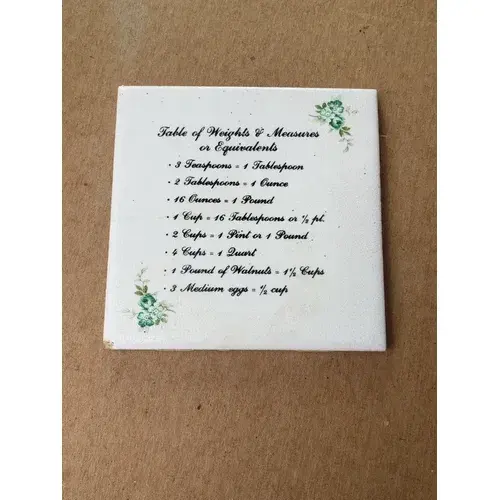 Table of Weights & Measures
or Equivalents
• 3 Teaspoons = 1 Tablespoon
• 2 Tablespoons = 1 Ounce
• 16 Ounces = 1 Pound
• 1 Cup = 16 Tablespoons or ½ pt.
• 2 Cups = 1 Pint or 1 Pound
• 4 Cups = 1 Quart
• 1 Pound of Walnuts = 1½ Cups
• 3 Medium eggs = ½ cup